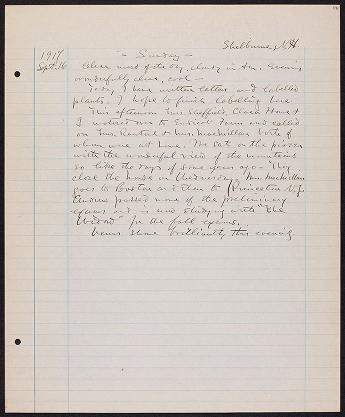 Shelburne, N.H.
1917
Sept. 16 - Sunday -
Clear most of the day, cloudy in A.M. Evening
wonderfully clear, cool -
To-day I have written letters and labelled
plants. I hope to finish labelling here
This afternoon Mrs. Sheffield, Clara &
I motored over to Farm and called
on Mrs. and Mrs. McMillan both of
whom were at home. We sat on the piazza
with the wonderful view of the mountains
so like the days of some years ago - They
close the house on Wednesday. Mrs. McMillan
goes to Boston and then to Princeton N.J.
passed none of the preliminary
exams and is now studying with "The
Widow" for the fall exams.
Venus shone brilliantly this evening